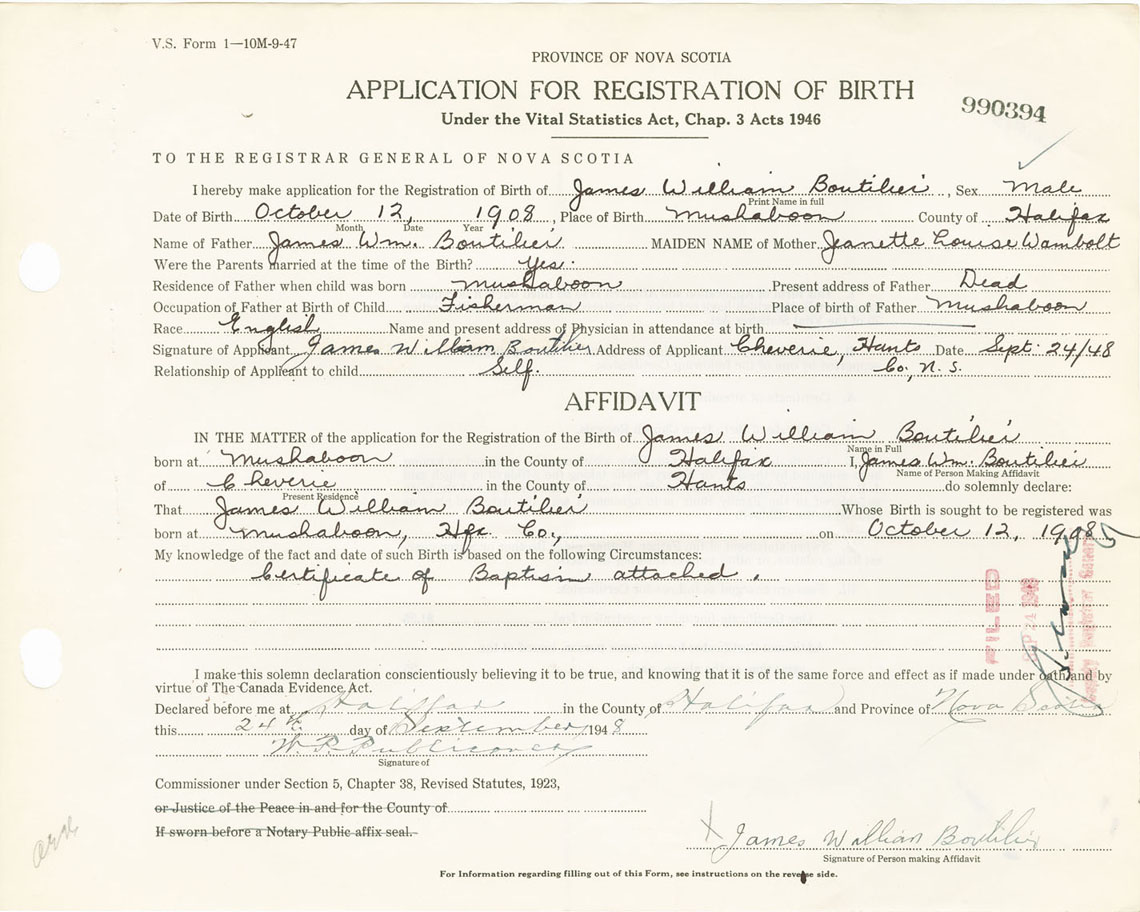 V.S. Form 1—10M-9-47
PROVINCE OF NOVA SCOTIA
APPLICATION FOR REGISTRATION OF BIRTH
990394
Under the Vital Statistics Act, Chap. 3 Acts 1946
TO THE REGISTRAR GENERAL OF NOVA SCOTIA
I hereby make application for the Registration of Birth of James William Boutilier, Sex Male
Print Name in full
Date of Birth October 12, 1908, Place of Birth Mushaboon County of Halifax
Month Date Year
Name of Father James Wm. Boutilier MAIDEN NAME of Mother Jeanette Louise Wambolt
Were the Parents married at the time of the Birth? Yes.
Residence of Father when child was born Mushaboon Present address of Father Dead
Occupation of Father at Birth of Child Fisherman Place of birth of Father Mushaboon
Race English Name and present address of Physician in attendance at birth
Signature of Applicant James William Boutilier Address of Applicant Cheverie, Hants Date Sept. 24/48
Relationship of Applicant to child Self. Co., N. S.
AFFIDAVIT
IN THE MATTER of the application for the Registration of the Birth of James William Boutilier
Name in Full
born at Mushaboon in the County of Halifax I, James Wm. Boutilier
Name of Person Making Affidavit
of Cheverie in the County of Hants do solemnly declare:
Present Residence
That James William Boutilier Whose Birth is sought to be registered was
born at Mushaboon, Hfx. Co., on October 12, 1908
My knowledge of the fact and date of such Birth is based on the following Circumstances:
Certificate of Baptism attached.
FILED
I make this solemn declaration conscientiously believing it to be true, and knowing that it is of the same force and effect as if made under oath and by
virtue of The Canada Evidence Act.
Declared before me at Halifax in the County of Halifax and Province of Nova Scotia
this 24th day of September 1948
Signature of
Commissioner under Section 5, Chapter 38, Revised Statutes, 1923,
or Justice of the Peace in and for the County of
If sworn before a Notary Public affix seal.
X James William Boutilier
Signature of Person making Affidavit
For Information regarding filling out of this Form, see instructions on the reverse side.